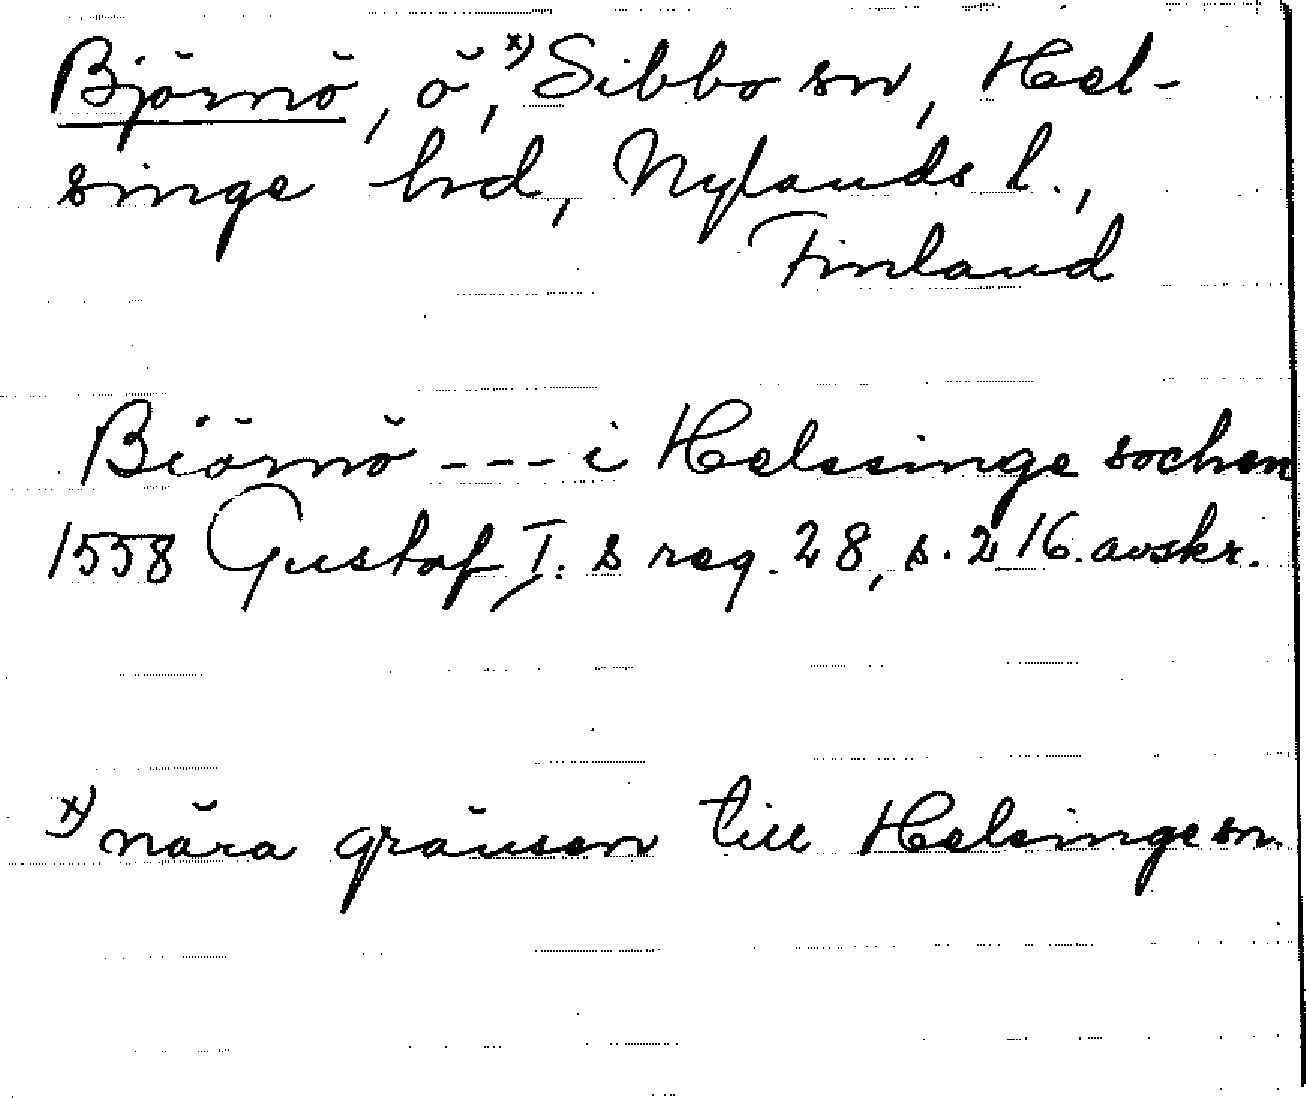 Björnö, ö,ˣ⁾ Sibbo sn, Hel-
singe hrd, Nylands l.,
Finland
Biörnö --- i Helssinge sochen
1558 Gustaf I:s reg. 28, s. 216. avskr.
ˣ⁾ nära gränsen till Helsinge sn.